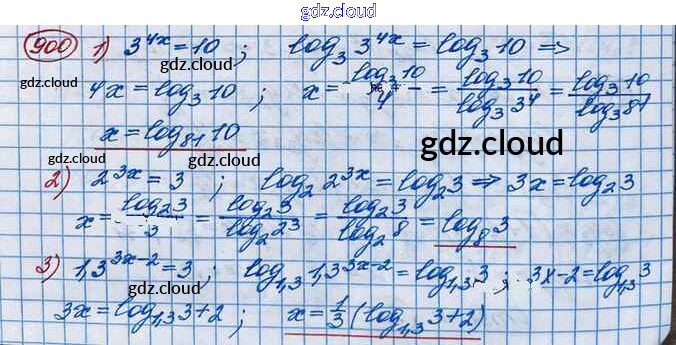 gdz.cloud
gdz.cloud
900 1) 3^{4x} = 10 ; log_3 3^{4x} = log_3 10 ⇒
gdz.cloud
4x = log_3 10 ; x = \frac{log_3 10}{4} = \frac{log_3 10}{log_3 3^4} = \frac{log_3 10}{log_3 81}
gdz.cloud
x = log_{81} 10
gdz.cloud gdz.cloud gdz.cloud
2) 2^{3x} = 3 ; log_2 2^{3x} = log_2 3 ⇒ 3x = log_2 3
x = \frac{log_2 3}{3} = \frac{log_2 3}{log_2 2^3} = \frac{log_2 3}{log_2 8} = log_8 3
3) 1,3^{3x-2} = 3 ; log_{1,3} 1,3^{3x-2} = log_{1,3} 3 ; 3x-2 = log_{1,3} 3
gdz.cloud gdz.cloud
3x = log_{1,3} 3+2 ; x = \frac{1}{3} (log_{1,3} 3+2)